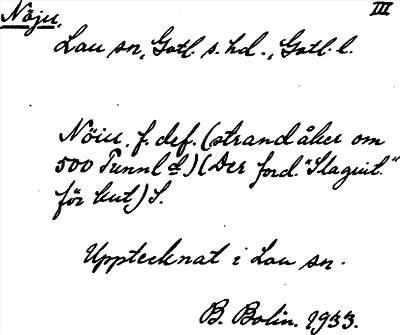 Nöju.
III
Lau sn, Gotl. s. hd., Gotl. l.
Nöiu. f. def. (strandåker om
500 Tunnl d) (Der ford. "Slaguit."
för hut) S.
Upptecknat i Lau sn.
B. Bolin. 1933.